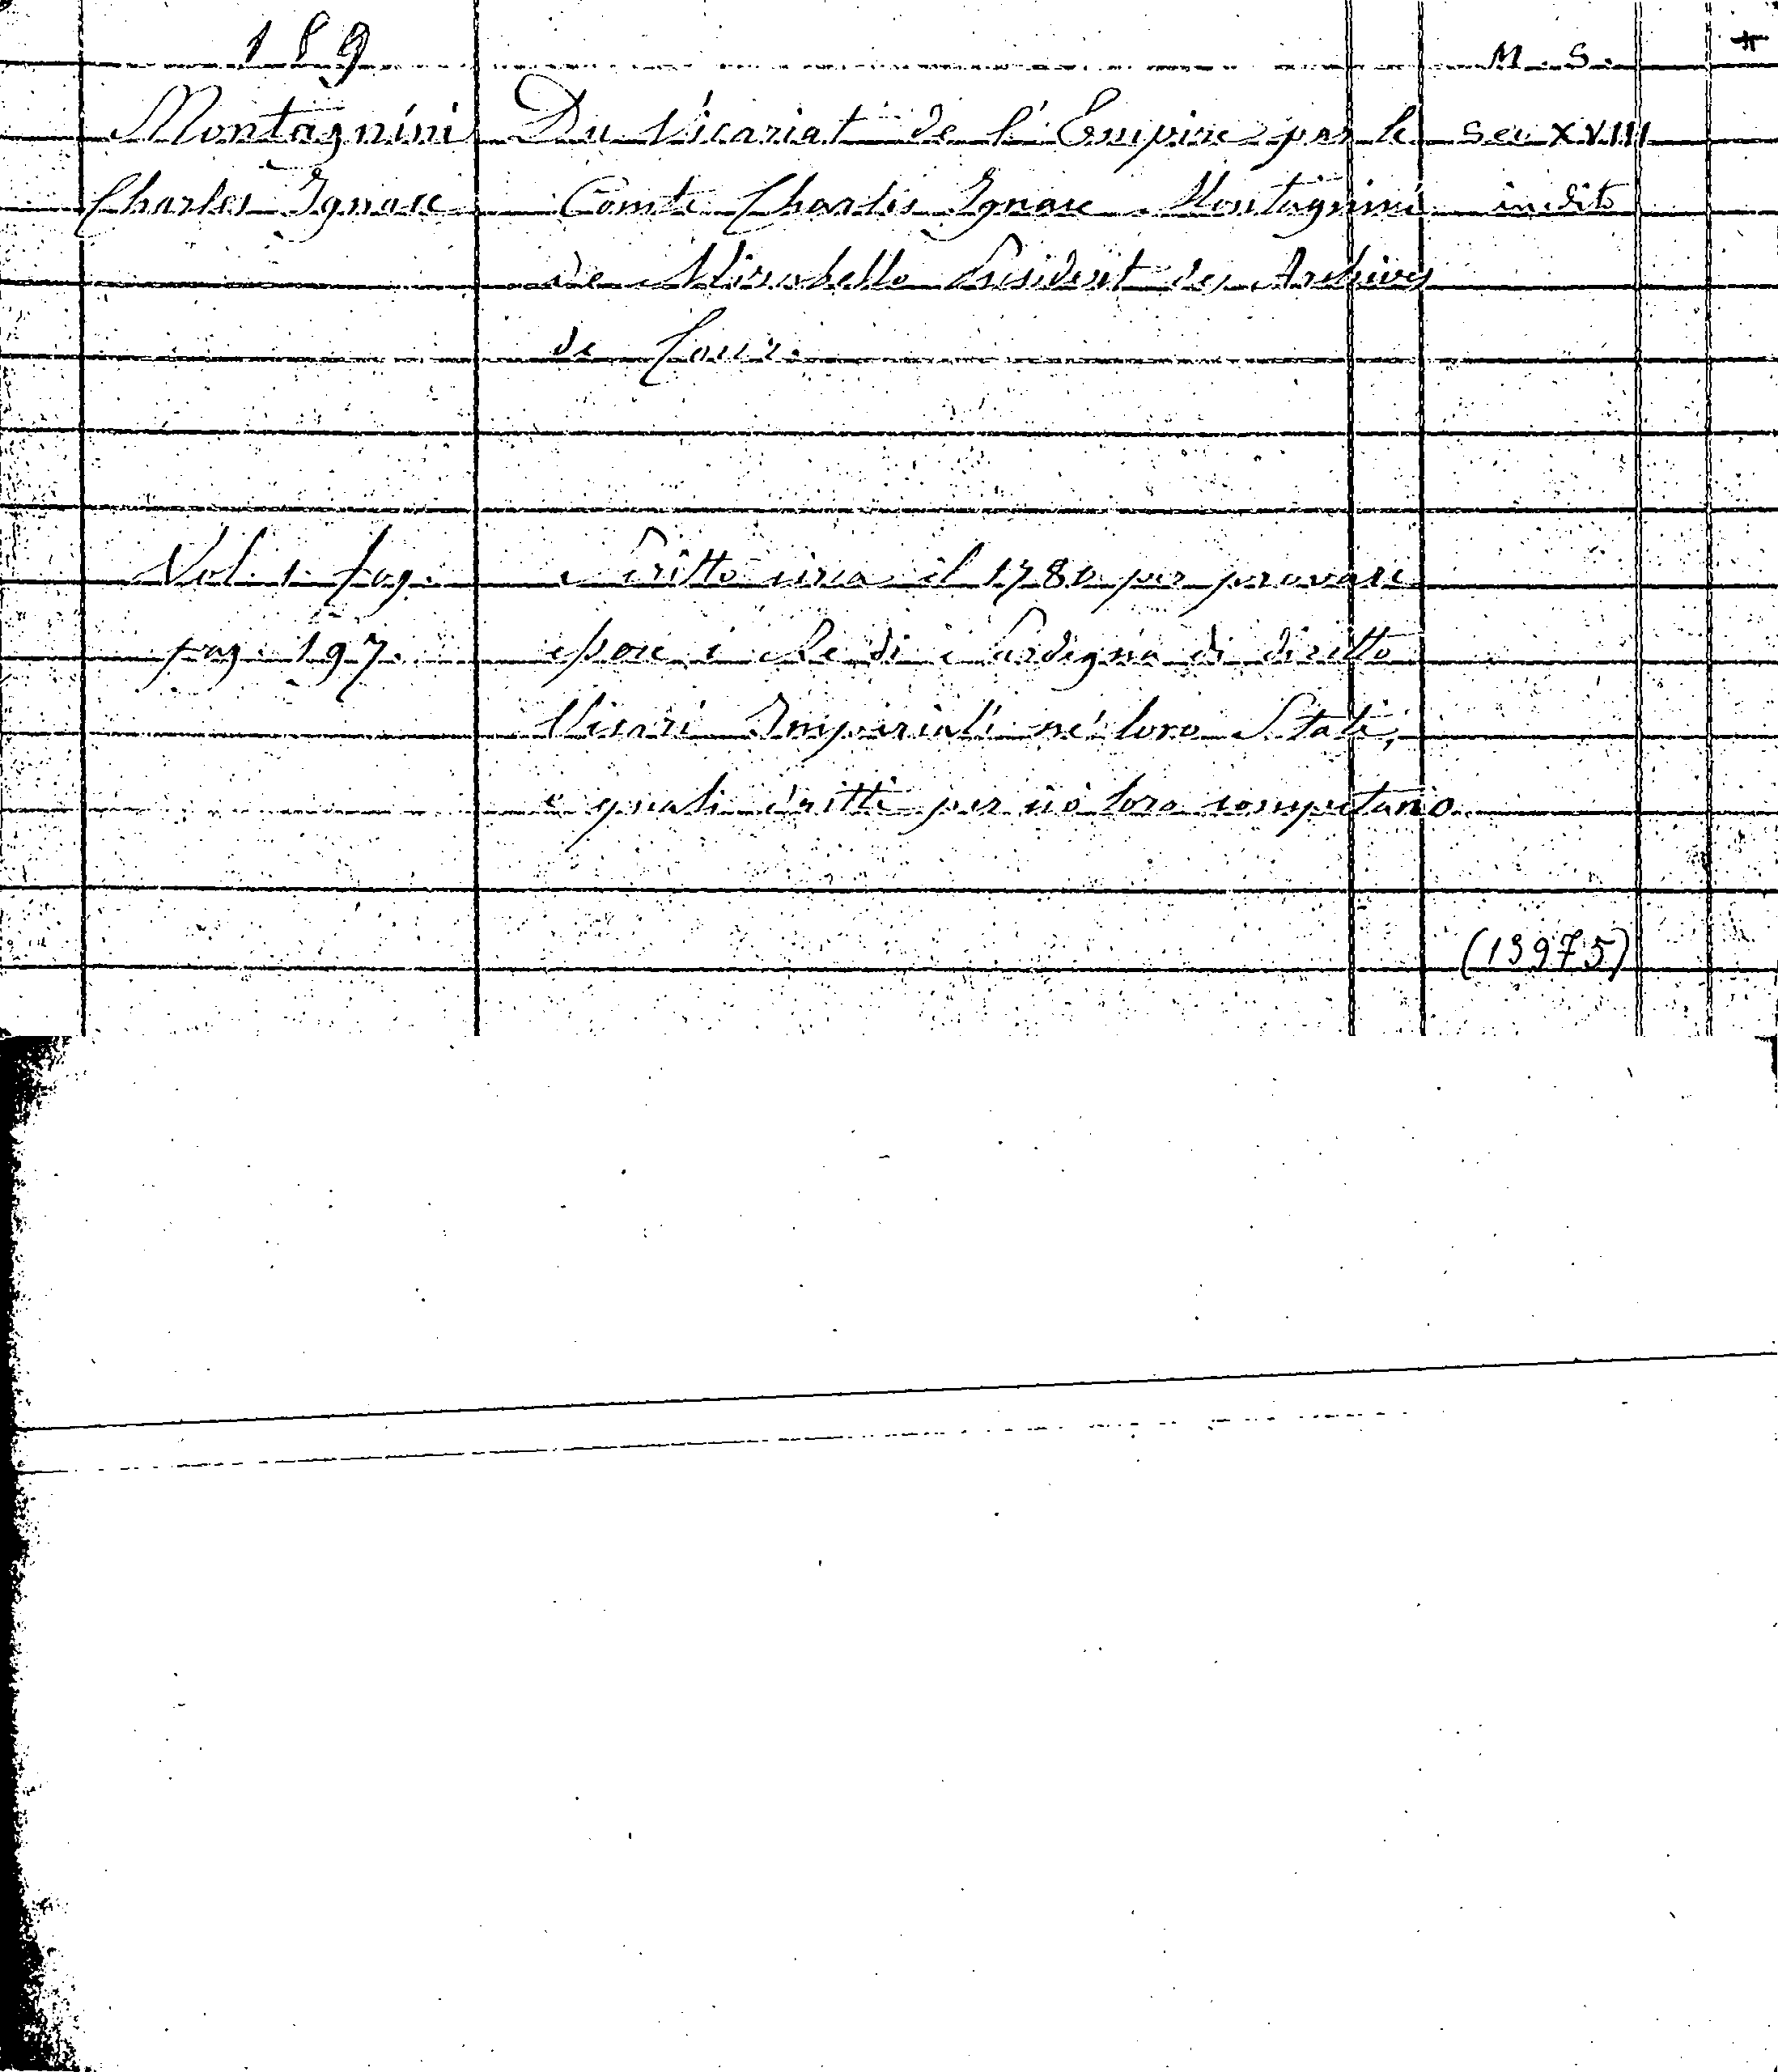 189
M. S.
Montagnini
Charles Ignace
Du Vicariat de l'Empire par le
Comte Charles Ignace Montagnini
de Mirabello Président des Archives
de Cour.
sec XVIII
inedito
Vol. 1. fog.
pag. 197.
Scritto circa il 1780 per provare
i Re di Sardegna di diritto
Vicari Imperiali ne' loro Stati,
e quali dritti per ciò loro competano.
(13975)